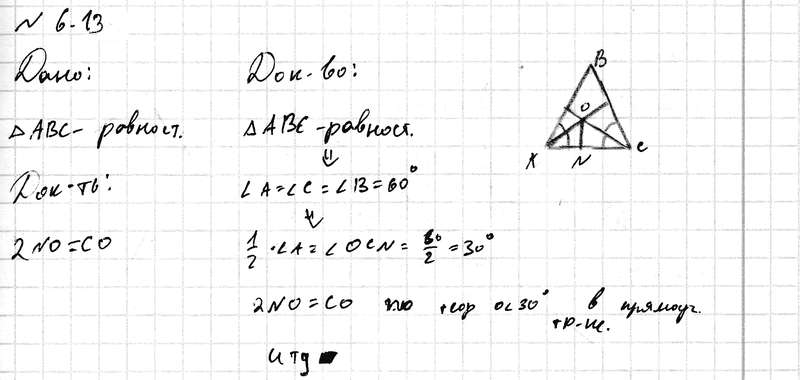 N 6-13
Дано:
△ABC - равност.
Док-ть:
2NO=CO
Док-во:
△ABC - равност.
⇓
∠A=∠C=∠B=60°
⇓
1/2 · ∠A = ∠OCN = 60/2 = 30°
2NO=CO по теор о ∠30° в прямоуг.
тр-ке.
и тд
B
O
A
N
C